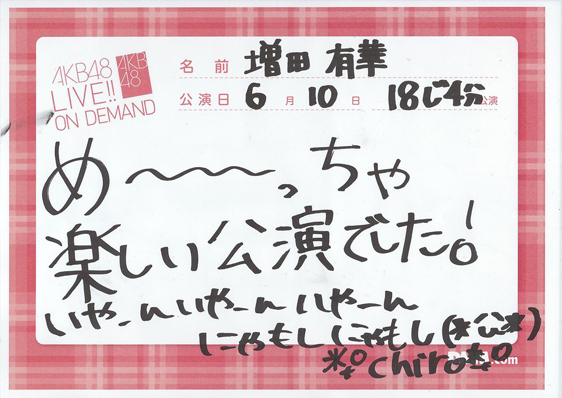 AKB48
LIVE!!
ON DEMAND
AKB
48
名前 増田 有華
公演日 6月 10日 18じ4分公演
め〜〜〜っちゃ
楽しい公演でした!
いやーんいやーんいやーん
にゃもし にゃもし(*公*)
*。°chiro*。°
.com